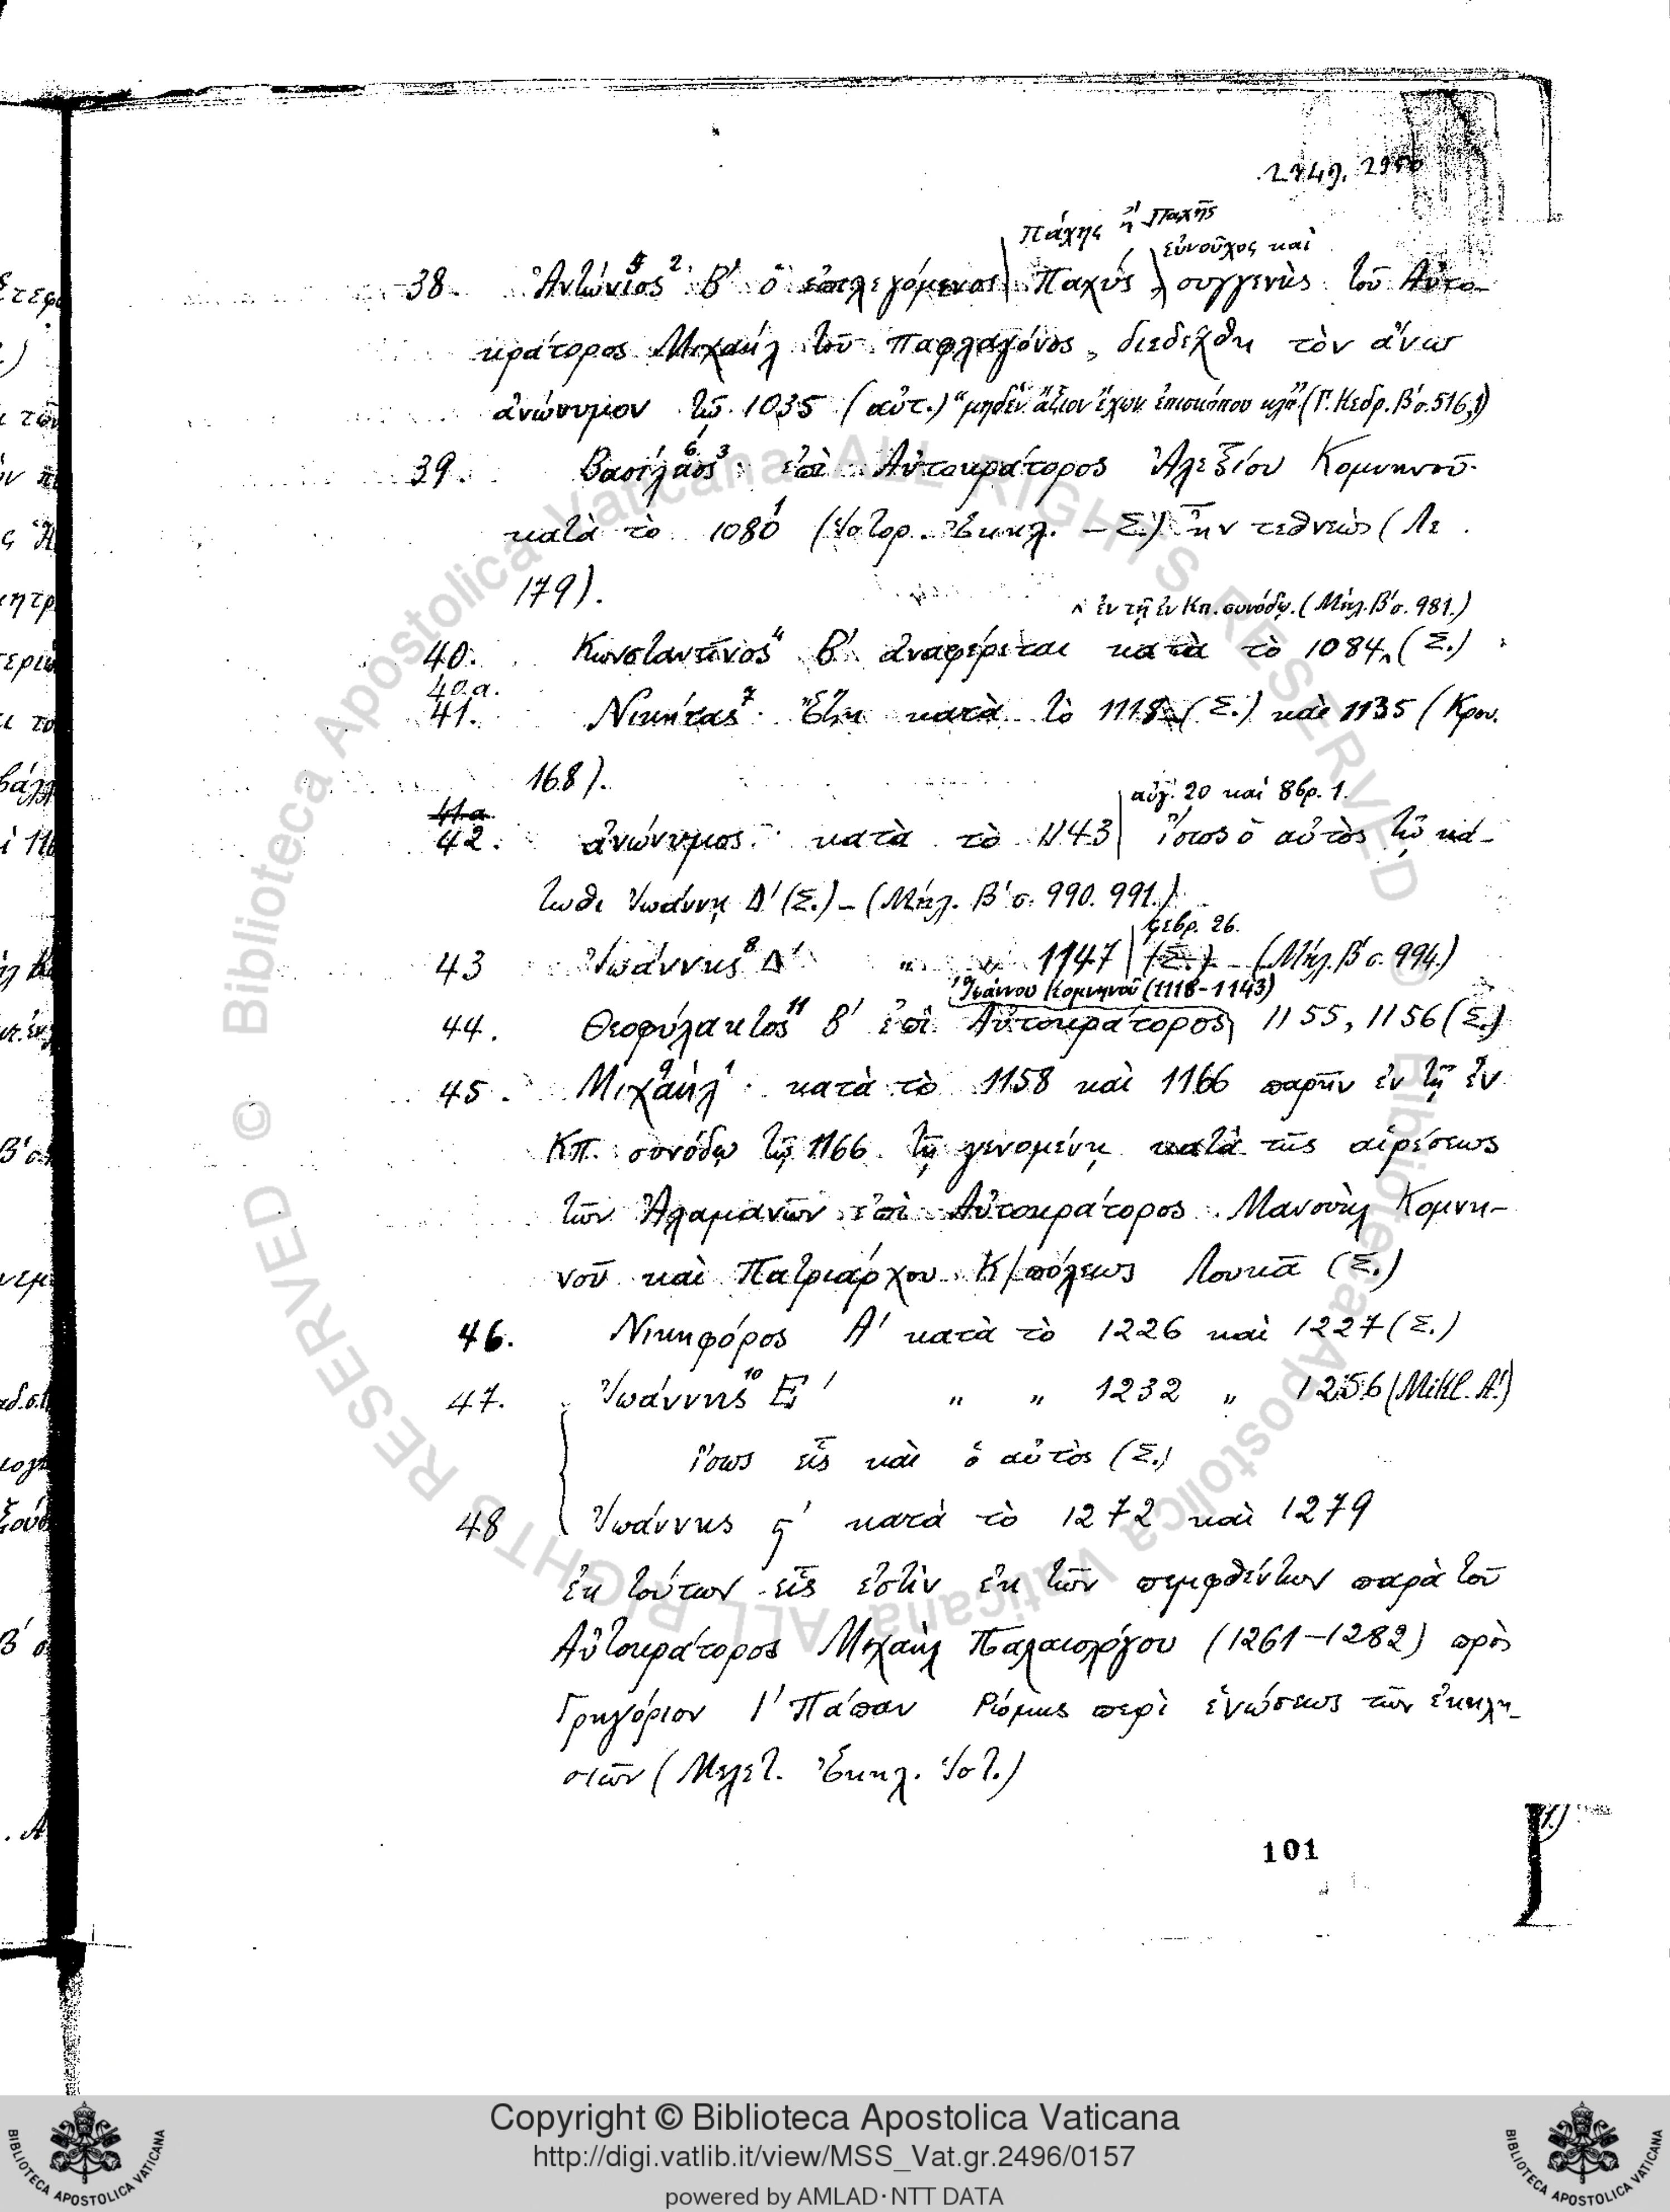 2949, 2950
Πάχης ἢ Παχῆς
εὐνοῦχος καὶ
38. Ἀντώνιος Β' ὁ ἐπιλεγόμενος Παχὺς συγγενὴς τοῦ Αὐτο-
κράτορος Μιχαὴλ τοῦ Παφλαγόνος, διεδέχθη τὸν ἄνω
ἀνώνυμον τῷ 1035 (αὐτ.) "μηδὲν ἄξιον ἔχων ἐπισκόπου κλπ" (Γ. Κεδρ. Β' σ. 516,1)
39. Βασίλειος ἐπὶ Αὐτοκράτορος Ἀλεξίου Κομνηνοῦ
κατὰ τὸ 1080 (Ἱστορ. Ἐκκλ. – Σ.) ἦν τεθνεὼς (Λε
179).
ἐν τῇ ἐν Κπ. συνόδῳ. (Μήλ. Β' σ. 981.)
40. Κωνσταντῖνος Β' ἀναφέρεται κατὰ τὸ 1084 (Σ.)
40.α.
41. Νικήτας ἔζη κατὰ τὸ 1118 (Σ.) καὶ 1135 (Κρου.
168).
αὐγ. 20 καὶ 8βρ. 1.
41.α
42. ἀνώνυμος κατὰ τὸ 1143 ἴσως ὁ αὐτὸς τῷ κά-
τωθι Ἰωάννῃ Δ' (Σ.) – (Μήλ. Β' σ. 990. 991.)
φεβρ. 26.
43 Ἰωάννης Δ' " " 1147 (Σ.) – (Μήλ. Β' σ. 994.)
Ἰωάννου Κομνηνοῦ (1118-1143)
44. Θεοφύλακτος Β' ἐπὶ Αὐτοκράτορος 1155, 1156 (Σ.)
45. Μιχαὴλ κατὰ τὸ 1158 καὶ 1166 παρῆν ἐν τῇ ἐν
Κπ. συνόδῳ τῷ 1166 τῇ γενομένῃ κατὰ τῆς αἱρέσεως
τῶν Ἀλαμανῶν ἐπὶ Αὐτοκράτορος Μανουὴλ Κομνη-
νοῦ καὶ Πατριάρχου Κ/πόλεως Λουκᾶ (Σ.)
46. Νικηφόρος Α' κατὰ τὸ 1226 καὶ 1227 (Σ.)
47. Ἰωάννης Ε' " " 1232 " 1256 (Mikl. A.')
ἴσως εἷς καὶ ὁ αὐτὸς (Σ.)
48 Ἰωάννης ς' κατὰ τὸ 1272 καὶ 1279
ἐκ τούτων εἷς ἐστὶν ἐκ τῶν πεμφθέντων παρὰ τοῦ
Αὐτοκράτορος Μιχαὴλ Παλαιολόγου (1261-1282) πρὸς
Γρηγόριον Ι' Πάπαν Ῥώμης περὶ ἑνώσεως τῶν ἐκκλη-
σιῶν (Μελετ. Ἐκκλ. Ἱστ.)
101
Copyright © Biblioteca Apostolica Vaticana
http://digi.vatlib.it/view/MSS_Vat.gr.2496/0157
powered by AMLAD·NTT DATA
BIBLIOTECA APOSTOLICA VATICANA
BIBLIOTECA APOSTOLICA VATICANA
© Biblioteca Apostolica Vaticana ALL RIGHTS RESERVED
© Biblioteca Apostolica Vaticana ALL RIGHTS RESERVED